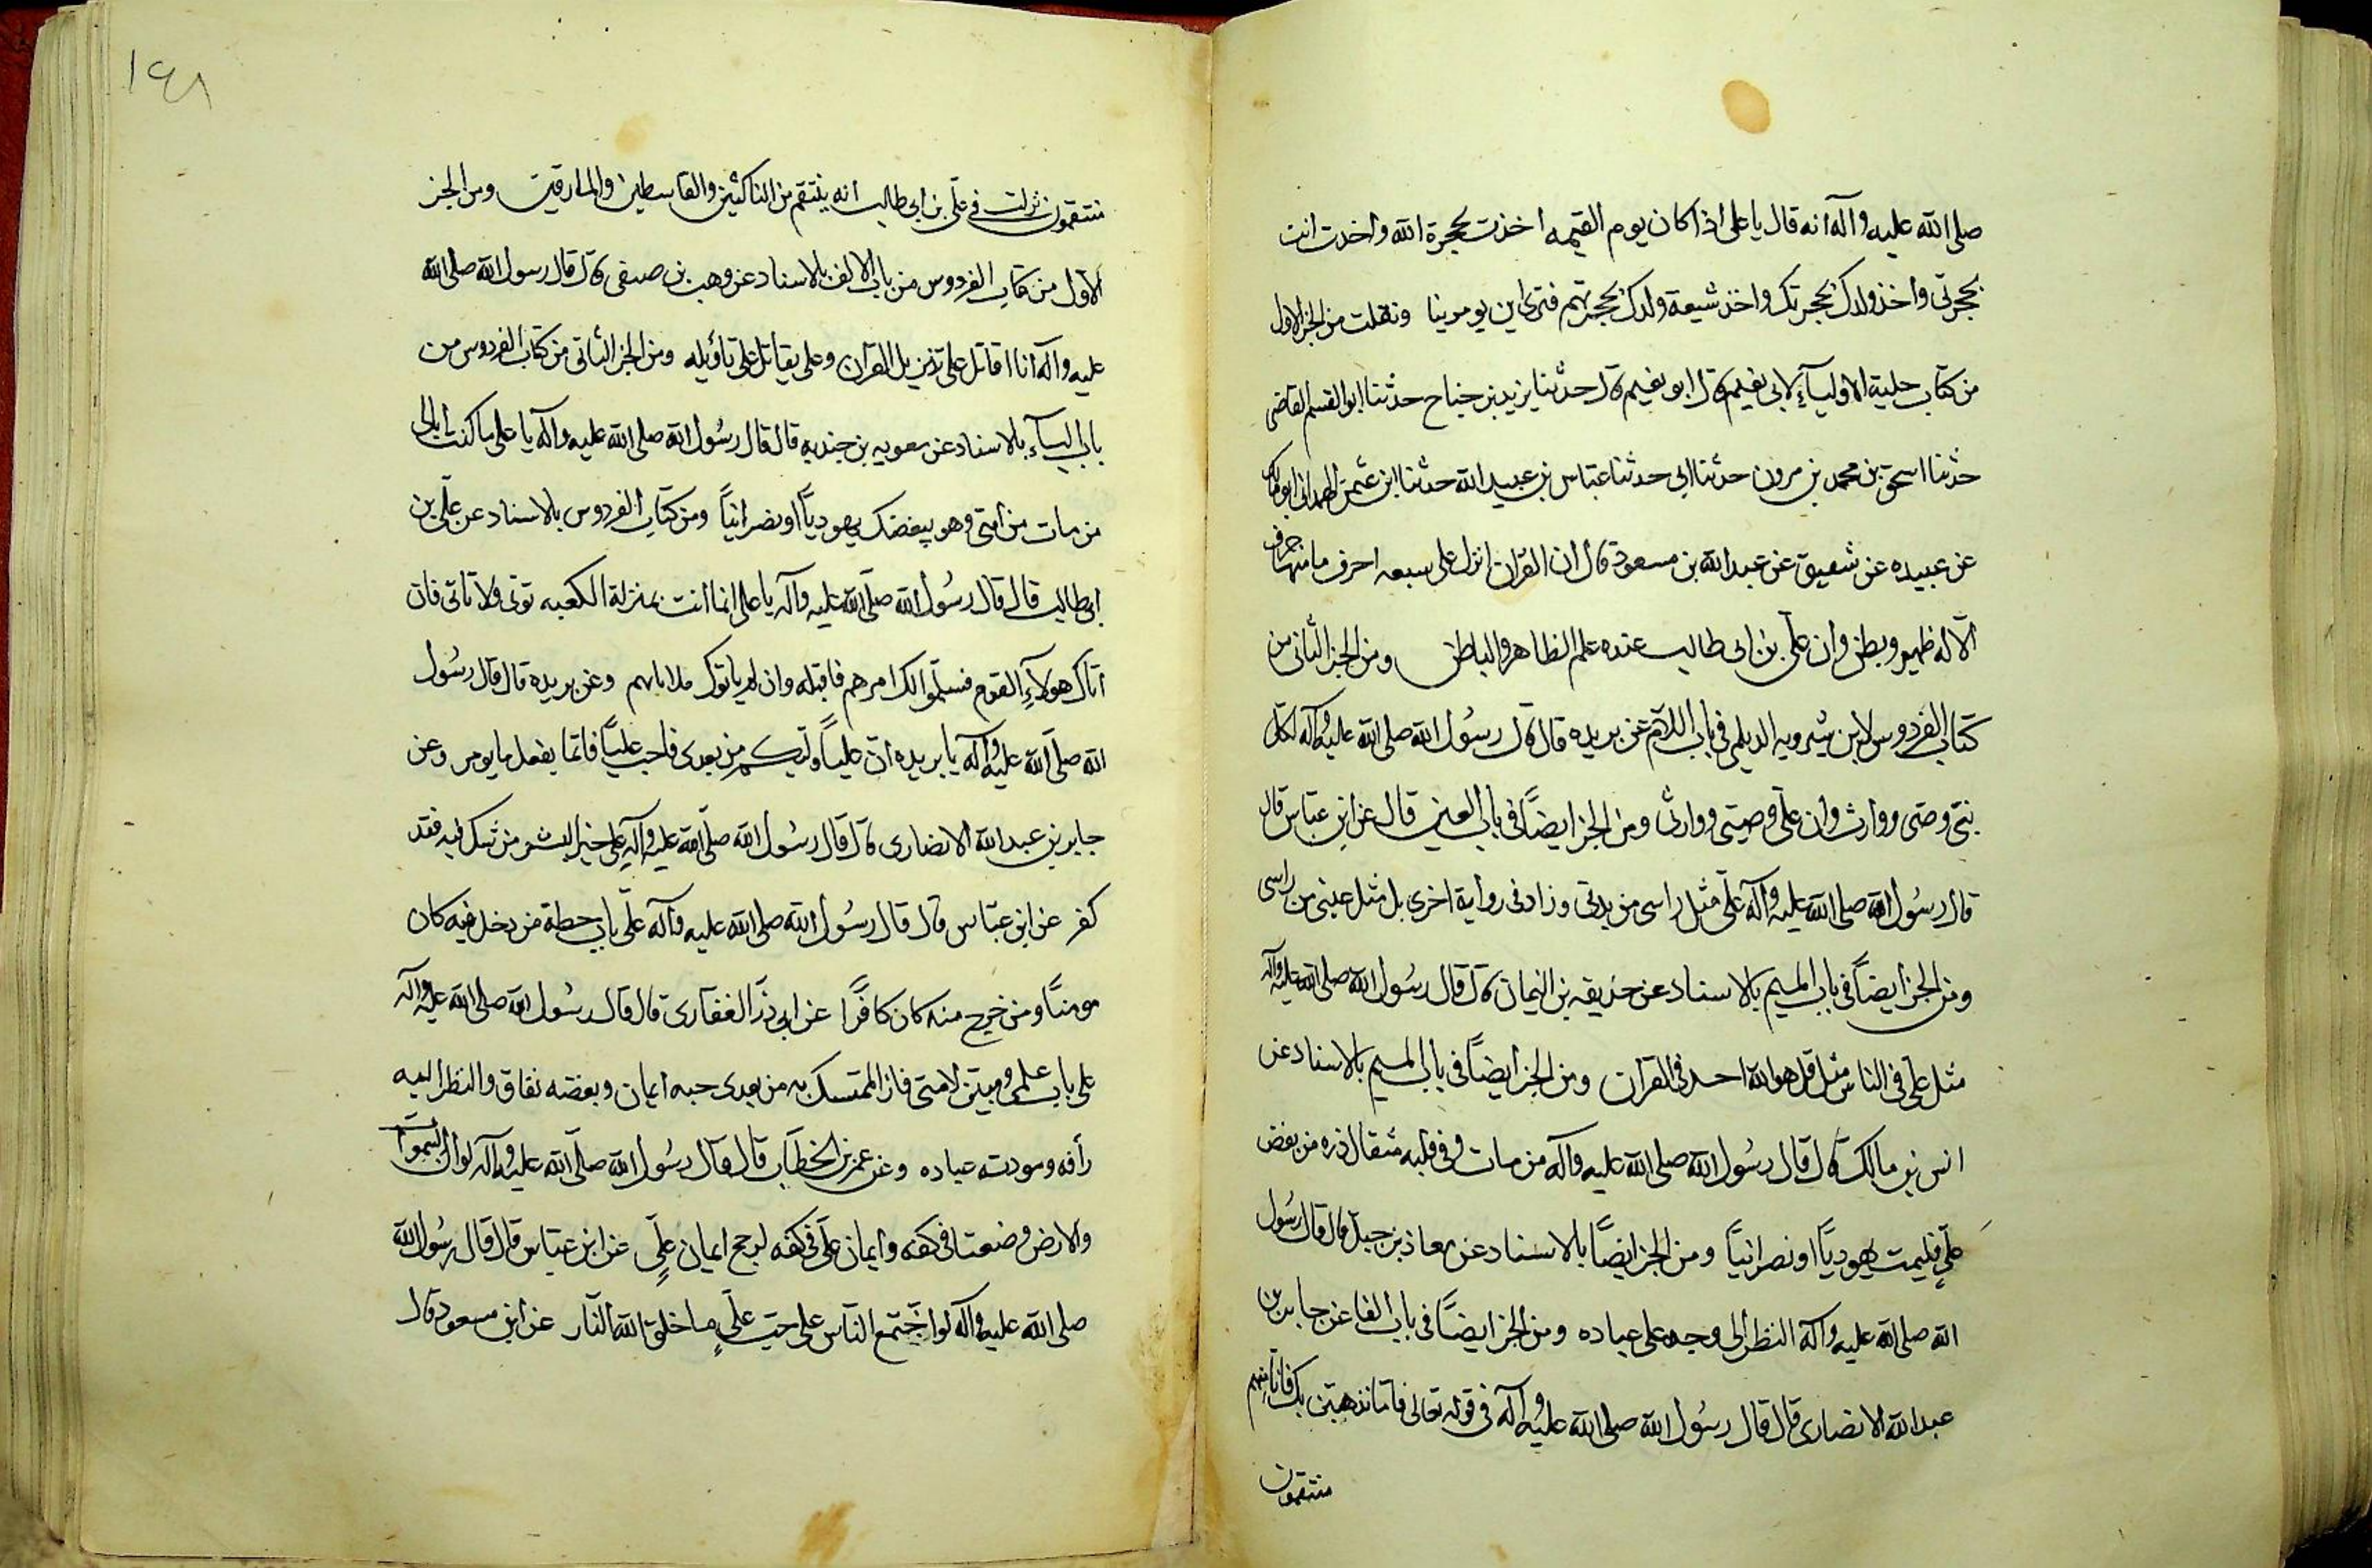 صلى الله عليه وآله انه قال يا على اذا كان يوم القيمه اخذت بحجزة الله واخذت انت
بحجزتى واخذ ولدك بحجزتك واخذ شيعة ولدك بحجزتهم فترى اين يومر بنا ونقلت من الجز الاول
من كتاب حلية الاوليآء لابى نعيم قال ابو نعيم قال حدثنا يزيد بن جناح حدثنا ابو القسم القاضى
حدثنا اسحق بن محمد بن مرون حدثنا ابى حدثنا عباس بن عبيد الله حدثنا ابن عثمن الهمدانى ابو مالك
عن عبيده عن شقيق عن عبد الله بن مسعود قال ان القران انزل على سبعه احرف ما منها حرف
الّا له ظهر وبطن وان علىّ بن ابى طالب عنده علم الظاهر والباطن ومن الجز الثانى من
كتاب الفردوس لابن شيرويه الديلمى فى باب اللام عن بريده قال قال رسول الله صلى الله عليه وآله لكل
نبىّ وصى ووارث وان علىّ وصيتى ووارثى ومن الجز ايضًا فى باب العين قال عن ابن عباس قال
قال رسول الله صلى الله عليه وآله علىّ مثل راسى من بدنى وزاد فى رواية اخرى بل مثل عينى من راسى
ومن الجز ايضًا فى باب الميم بالاسناد عن حذيفه بن اليمان قال قال رسول الله صلى الله عليه وآله
مثل على فى الناس مثل قل هو الله احد فى القرآن ومن الجز ايضًا فى باب الميم بالاسناد عن
انس بن مالك قال قال رسول الله صلى الله عليه وآله من مات وفى قلبه مثقال ذره من بغض
علىٍّ فليمت يهوديًّا او نصرانيًّا ومن الجز ايضًا بالاسناد عن معاذ بن جبل قال قال رسول
الله صلى الله عليه وآله النظر الى وجه على عباده ومن الجز ايضًا فى باب الفا عن جابر بن
عبد الله الانصارى قال قال رسول الله صلى الله عليه وآله فى قوله تعالى فاما نذهبن بك فانا منهم
منتقمون
١٤٨
منتقمون نزلت فى علىّ بن ابى طالب انه ينتقم من الناكثين والقاسطين والمارقين ومن الجز
الاول من كتاب الفردوس من باب الالف بالاسناد عن وهب بن صيفى قال قال رسول الله صلى الله
عليه وآله انا اقاتل على تنزيل القران وعلى يقاتل على تاؤيله ومن الجز الثانى من كتاب الفردوس من
باب اليآء بالاسناد عن معويه بن جنديه قال قال رسول الله صلى الله عليه وآله يا على ما كنت ابالى
من مات من امتى وهو يبغضك يهوديًّا او نصرانيًّا ومن كتاب الفردوس بالاسناد عن علىّ بن
ابى طالب قال قال رسول الله صلى الله عليه وآله يا على انما انت بمنزلة الكعبه توتى ولا تاتى فان
اتاك هولآءِ القوم فسلموا لك امرهم فاقبله وان لم ياتوك فلا تاتهم وعن بريده قال قال رسول
الله صلى الله عليه وآله يا بريده ان عليًّا وليكم من بعدى فاحب عليًّا فانما يفعل ما يومر وعن
جابر بن عبد الله الانصارى قال قال رسول الله صلى الله عليه وآله على خير البشر من شك فيه فقد
كفر عن ابن عباس قال قال رسول الله صلى الله عليه وآله علىّ باب حطة من دخل فيه كان
مومنًا ومن خرج منه كان كافرًا عن ابى ذرّ الغفارى قال قال رسول الله صلى الله عليه وآله
على باب علمى ومبين لامتى فان المتمسك به من بعدى حبه ايمان وبغضه نفاق والنظر اليه
رأفه ومودته عباده وعن عمر بن الخطاب قال قال رسول الله صلى الله عليه وآله لو ان السموات
والارض وضعتا فى كفه وايمان علىّ فى كفه لرجح ايمان علىٍّ عن ابن عباس قال قال رسول الله
صلى الله عليه وآله لو اجتمع الناس على حب علىٍّ ما خلق الله النار عن ابن مسعود قال